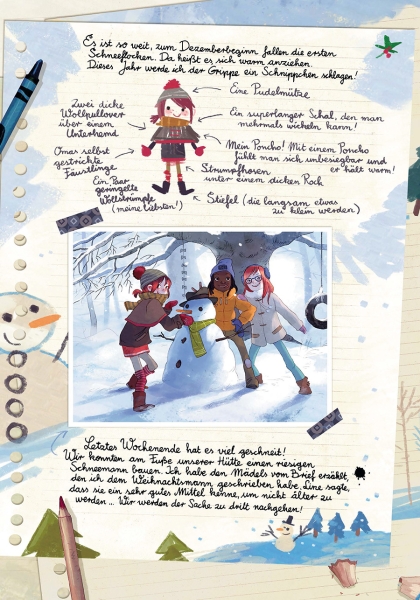 Es ist so weit, zum Dezemberbeginn fallen die ersten
Schneeflocken. Da heißt es sich warm anziehen.
Dieses Jahr werde ich der Grippe ein Schnippchen schlagen!
Eine Pudelmütze
Zwei dicke
Wollpullover
über einem
Unterhemd
Ein superlanger Schal, den man
mehrmals wickeln kann!
Omas selbst
gestrickte
Fäustlinge
Mein Poncho! Mit einem Poncho
fühlt man sich unbesiegbar und
er hält warm!
Strumpfhosen
unter einem dicken Rock
Ein Paar
geringelte
Wollstrümpfe
(meine liebsten!)
Stiefel (die langsam etwas
zu klein werden)
Letztes Wochenende hat es viel geschneit!
Wir konnten am Fuße unserer Hütte einen riesigen
Schneemann bauen. Ich habe den Mädels vom Brief erzählt,
den ich dem Weihnachtsmann geschrieben habe. Line sagte,
dass sie ein sehr gutes Mittel kenne, um nicht älter zu
werden ... Wir werden der Sache zu dritt nachgehen!